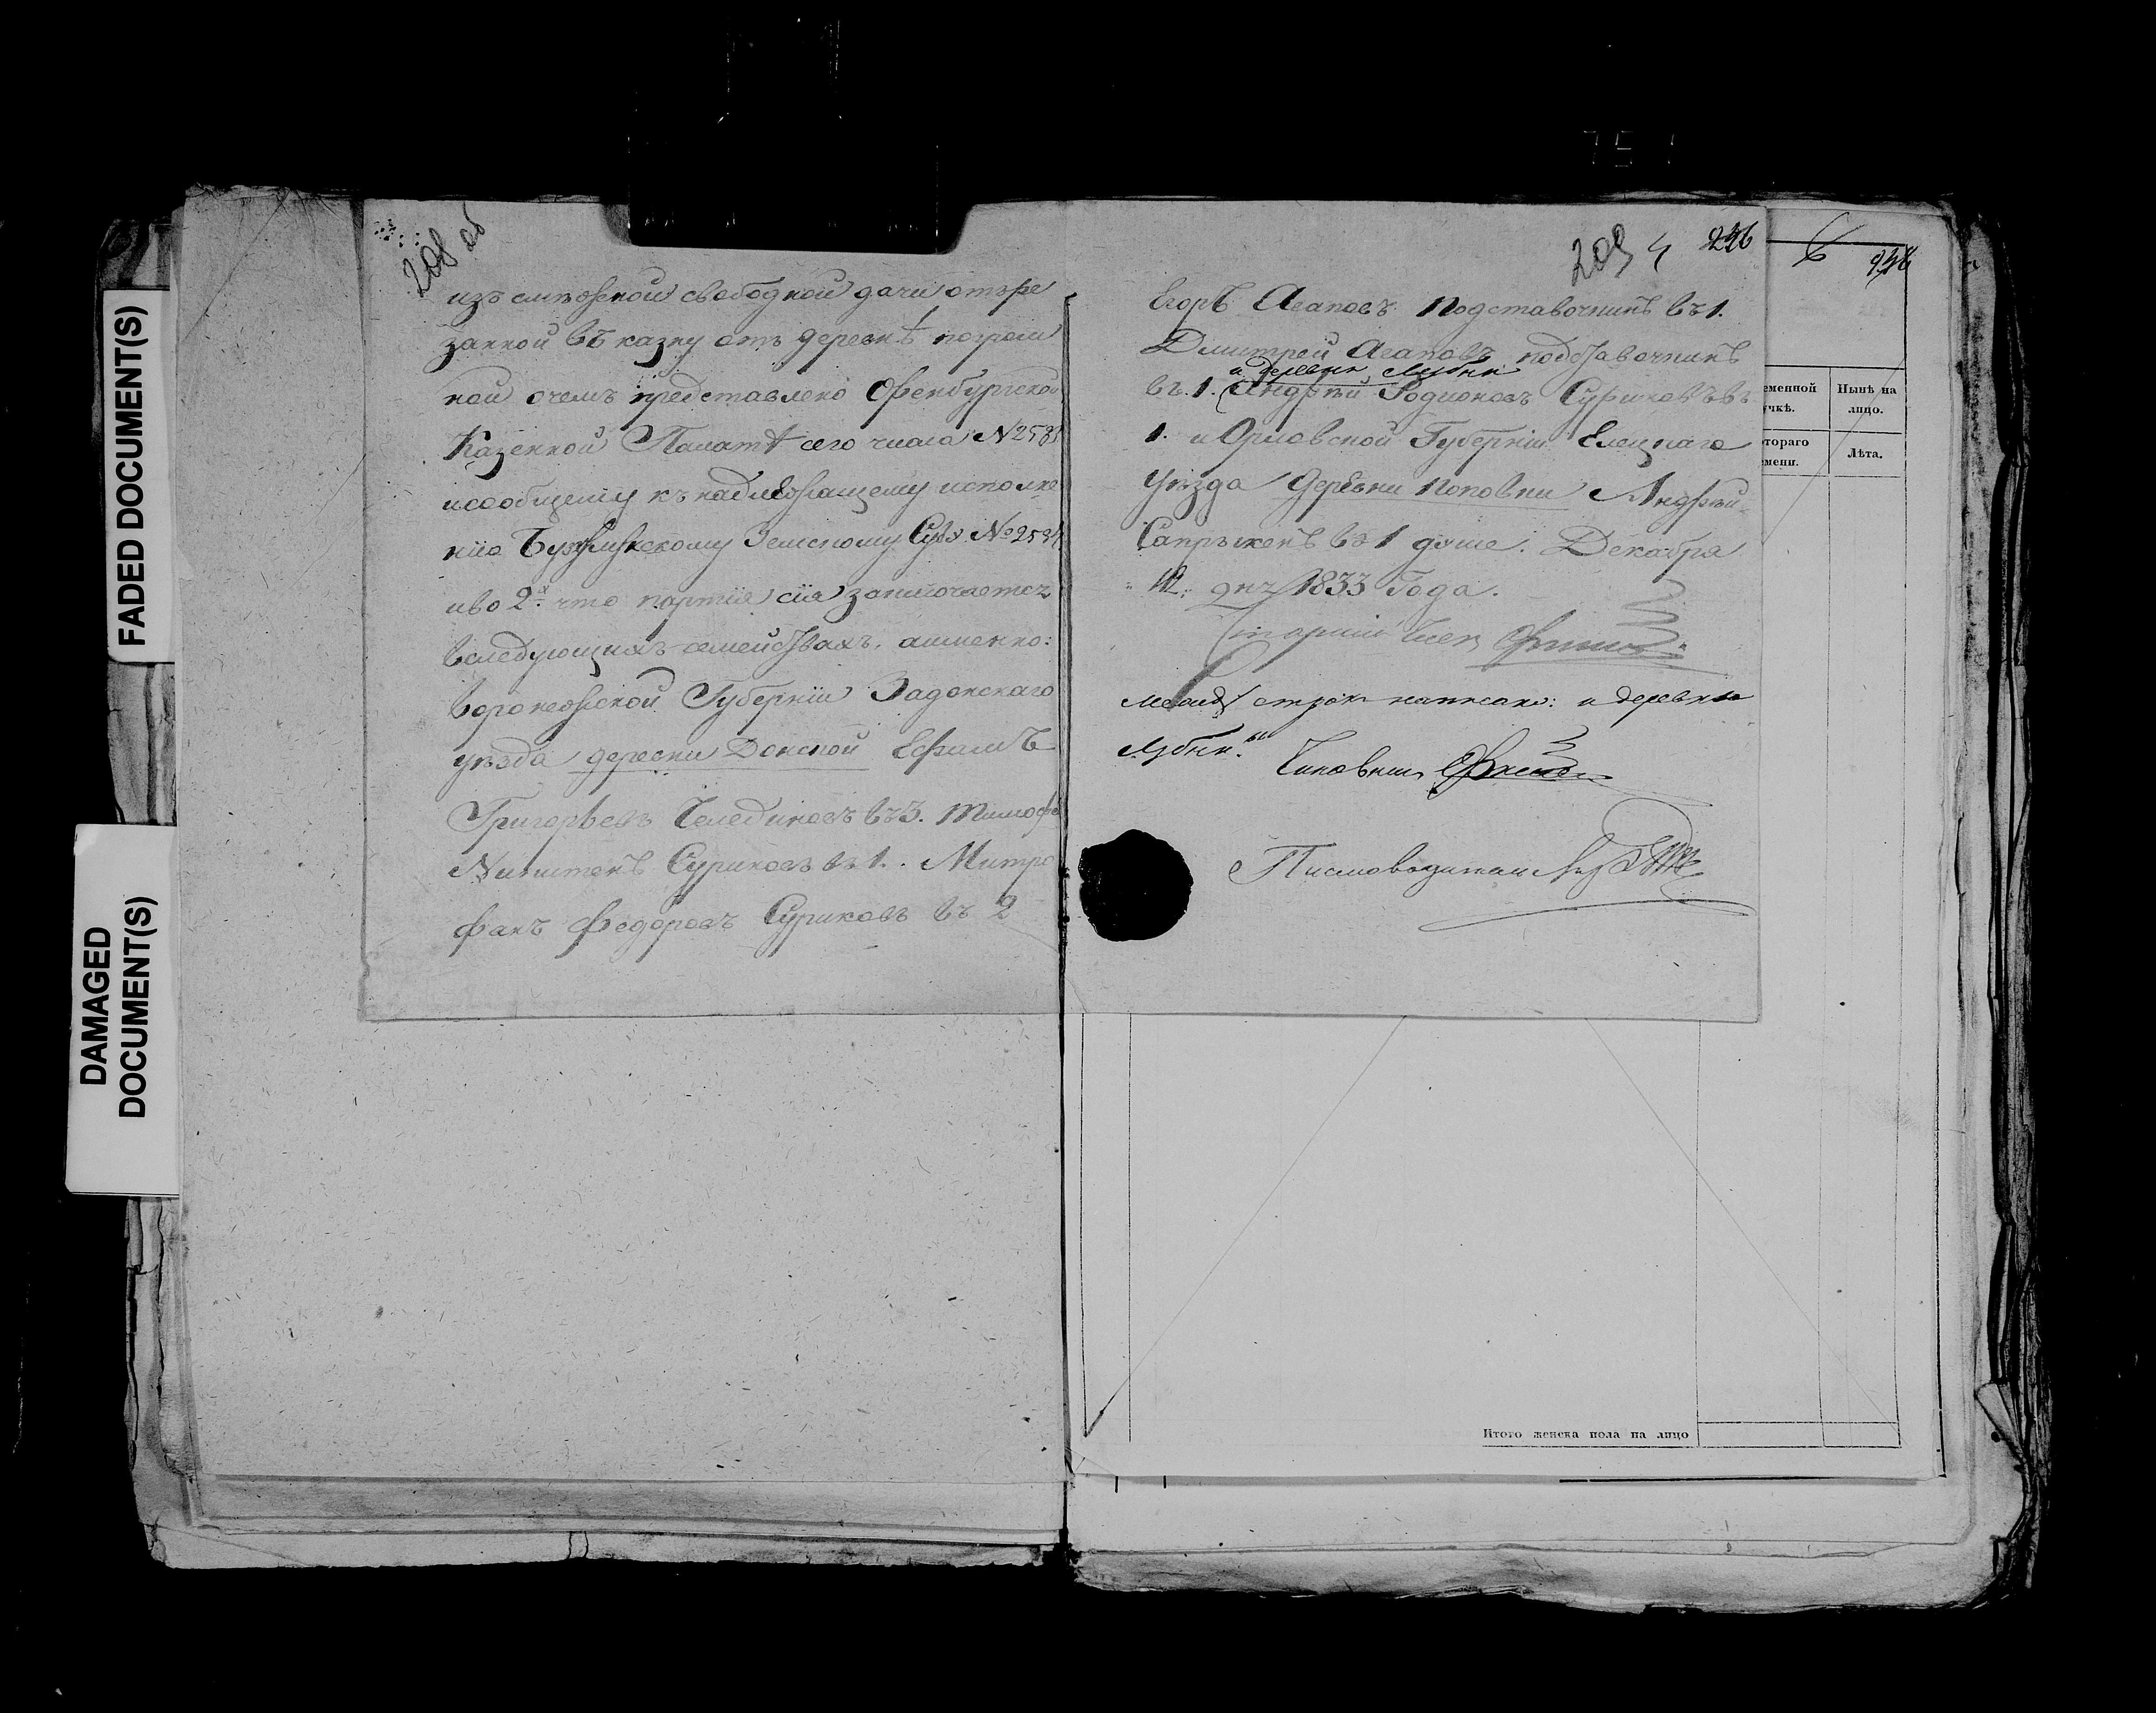 FADED DOCUMENT(S)
DAMAGED
DOCUMENT(S)
208 об
изъ смѣжной свободной дачи отъре
занной въ казну отъ деревнѣ погром
ной очемъ представлено Оренбургской
Казенной Палатѣ сего числа №
исообщему къ надлежащему исполне
нiю Бузулукскому Земскому Суду №
иво 2х что партiя сiя заключаетсz
вследующихъ семействахъ. аимянно:
Воронежской Губернiи Задонскаго
уѣзда деревни Донской Ефимъ
Григорьевъ Челединовъ въ 3. Тимофѣ
Никитенъ Суриковъ въ 1. Митро
фанъ Федоровъ Суриковъ въ 2
209 4 236
6
Егоръ Агаповъ Подставочникъ въ 1.
Дмитрей Агаповъ подставочникъ
и деревни Лубни
въ. 1. Андрѣй Родионовъ Суриковъ въ
1. и Орловской Губернiи Елецкаго
уѣзда Деревни Поповки Андрѣй
Сапрыкенъ въ 1 душе. Декабря
12. дня 1833 Года.
Старшiй
между строкъ написано: и деревни
Лубни."
Чиновник
Писмоводитель
еменной
учкѣ.
Нынѣ на
лицо.
тораго
мени.
Лѣта.
Итого женска пола на лицо